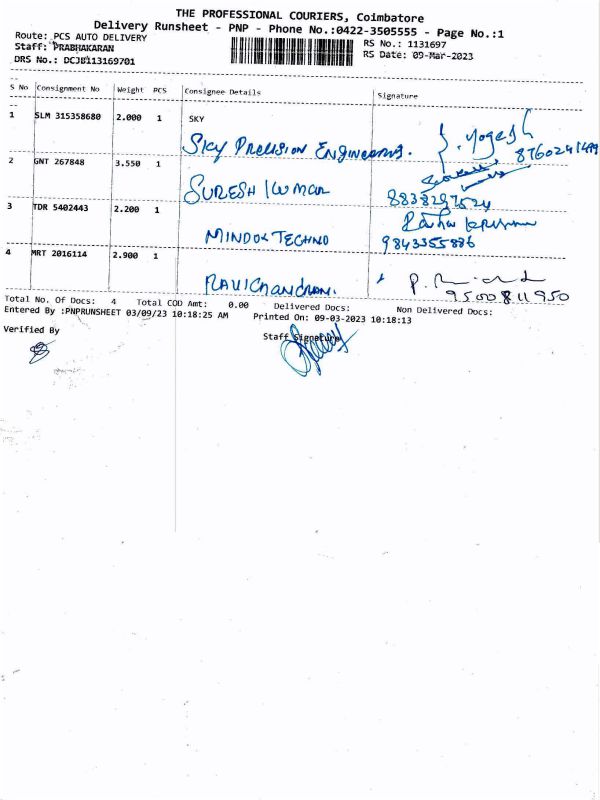 THE PROFESSIONAL COURIERS, Coimbatore
Delivery Runsheet - PNP - Phone No.:0422-3505555 - Page No.:1
Route: PCS AUTO DELIVERY
Staff: PRABHAKARAN
DRS No.: DCJB113169701
RS No.: 1131697
RS Date: 09-Mar-2023
S No Consignment No Weight PCS Consignee Details Signature
1 SLM 315358680 2.000 1 SKY
Sky Precision Engineering. Yogesh
8760241499
2 GNT 267848 3.550 1
SURESH KUMAR 8838297524
3 TDR 5402443 2.200 1
MINDOX TECHNO 9843355886
4 MRT 2016114 2.900 1
RAVICHANDRAN. 9500811950
Total No. Of Docs: 4 Total COD Amt: 0.00 Delivered Docs: Non Delivered Docs:
Entered By :PNPRUNSHEET 03/09/23 10:18:25 AM Printed On: 09-03-2023 10:18:13
Verified By Staff Signature